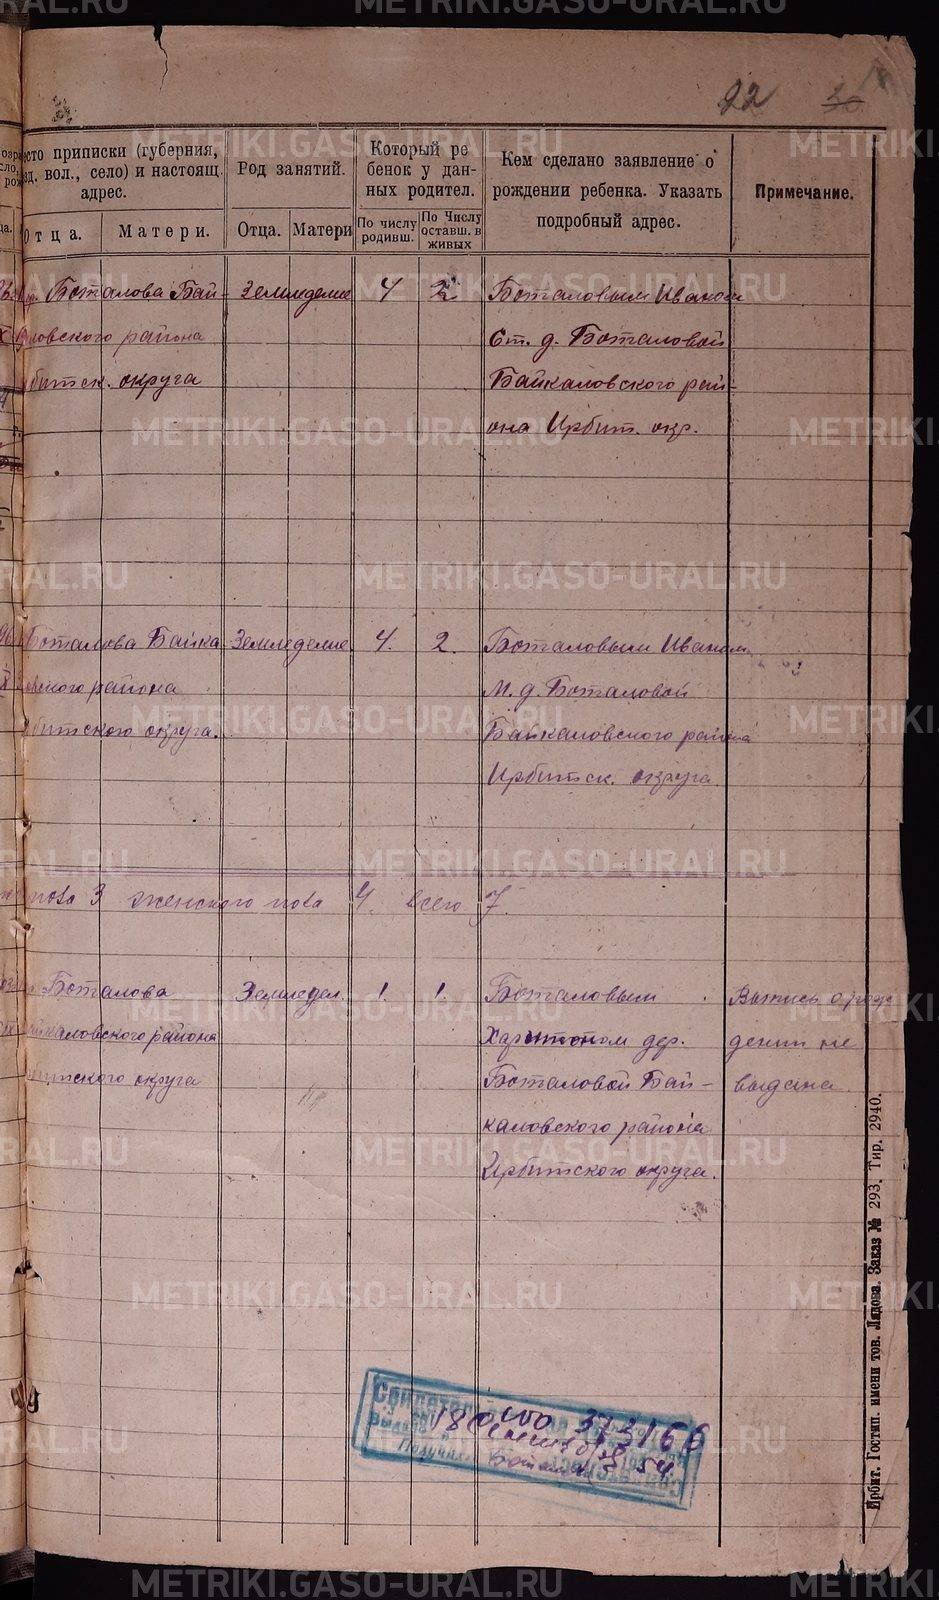 22 30
есто приписки (губерния,
зд. вол., село) и настоящ.
адрес.
Отца. Матери.
Род занятий.
Отца. Матери
Который ре
бенок у дан-
ных родител.
По числу
родивш.
По Числу
оставш. в
живых
Кем сделано заявление о
рождении ребенка. Указать
подробный адрес.
Примечание.
Боталова Бай-
ловского района
битск. округа
Земледелие
4 2
Боталовым Иваном
Ст. д. Боталовой
Байкаловского рай-
она Ирбит. окр.
Боталова Байка
вского района
битского округа.
Земледелие
4. 2.
Боталовым Иваном
М. д. Боталовой
Байкаловского района
Ирбитск. округа.
пола 3 женского пола 4. всего 7.
Боталова
йкаловского района
битского округа
Земледел.
1. 1.
Боталовым
Харитоном дер.
Боталовой Бай-
каловского района
Ирбитского округа.
Выпись о рож
дении не
выдана
Ирбит. Гостип. имени тов. Лядова. Заказ № 293. Тир. 2940.
METRIKI.GASO-URAL.RU